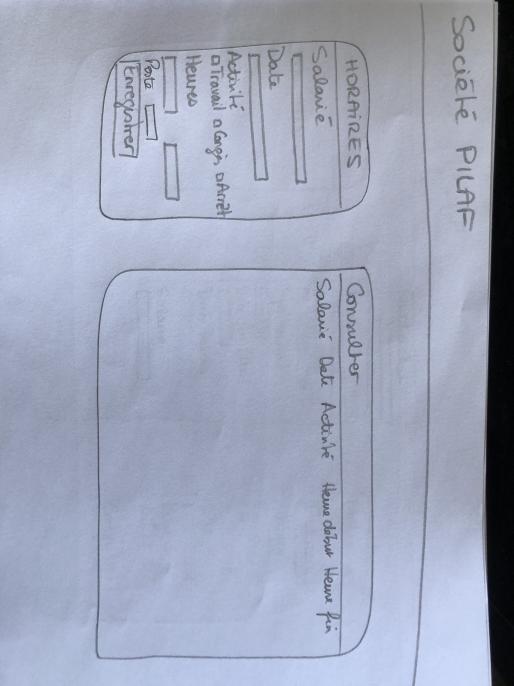 Société PILAF
HORAIRES
Salarié
Date
Activité
Travail Congés Arrêt
Heures
Poste
Enregistrer
Consulter
Salarié Date Activité Heure début Heure fin